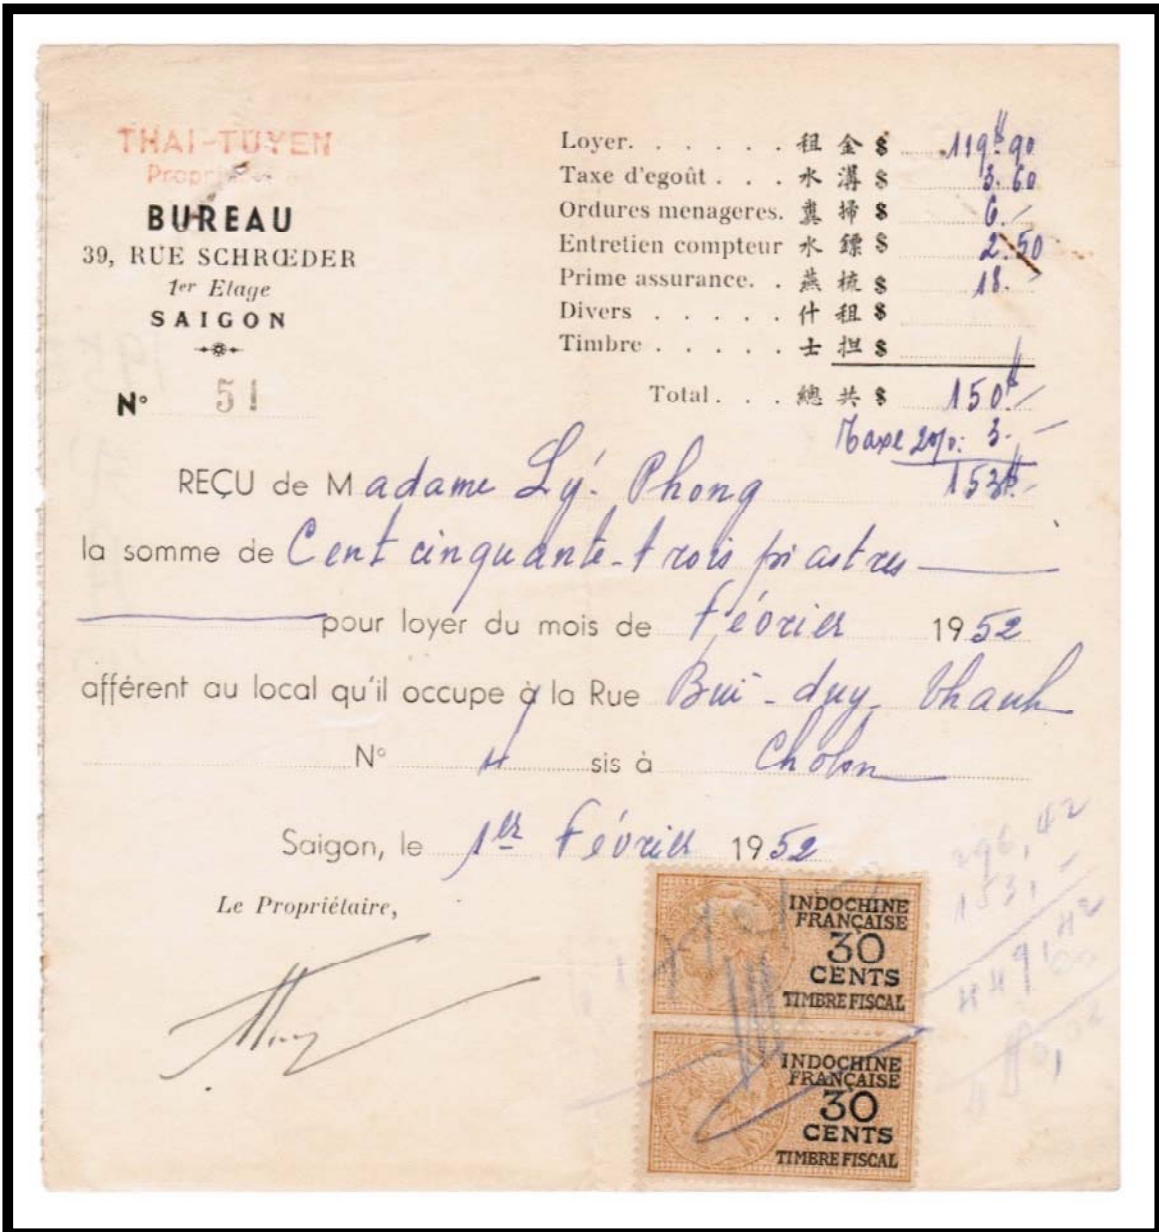 THAI-TUYEN
BUREAU
39, RUE SCHRŒDER
1er Etage
SAIGON
N° 51
Loyer. . . . . . 租金 $ 119$90
Taxe d'egoût . . . 水溝 $ 3.60
Ordures menageres. 糞掃 $ 6.-
Entretien compteur 水鏢 $ 2.50
Prime assurance. . 燕梳 $ 18.-
Divers . . . . . 什租 $
Timbre . . . . . 士担 $
Total. . . 總共 $ 150$-
Taxe 2%: 3.-
153$-
REÇU de Madame Lý. Phong
la somme de Cent cinquante-trois piastres
pour loyer du mois de Février 1952
afférent au local qu'il occupe à la Rue Bui-duy-Thanh
N° 4 sis à Cholon
Saigon, le 1er Février 1952
Le Propriétaire,
INDOCHINE
FRANÇAISE
30
CENTS
TIMBRE FISCAL
INDOCHINE
FRANÇAISE
30
CENTS
TIMBRE FISCAL
296,42
153,-
449,42